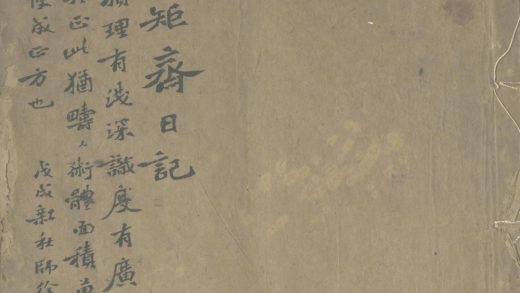 矩齋日記
理有淺深識度有廣
此猶疇〻術體面積
成正方也
戊戌新秋師徐